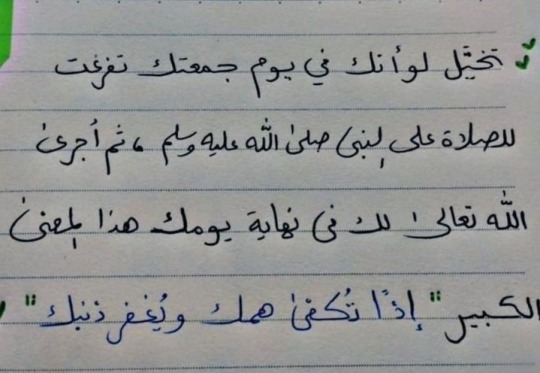 تخيَّل لو أنك في يوم جمعتك تفرغت
للصلاة على النبى صلى الله عليه وسلم ، ثم أجرى
الله تعالى لك فى نهاية يومك هذا المعنى
الكبير " إذًا تُكفى همك ويُغفر ذنبك "